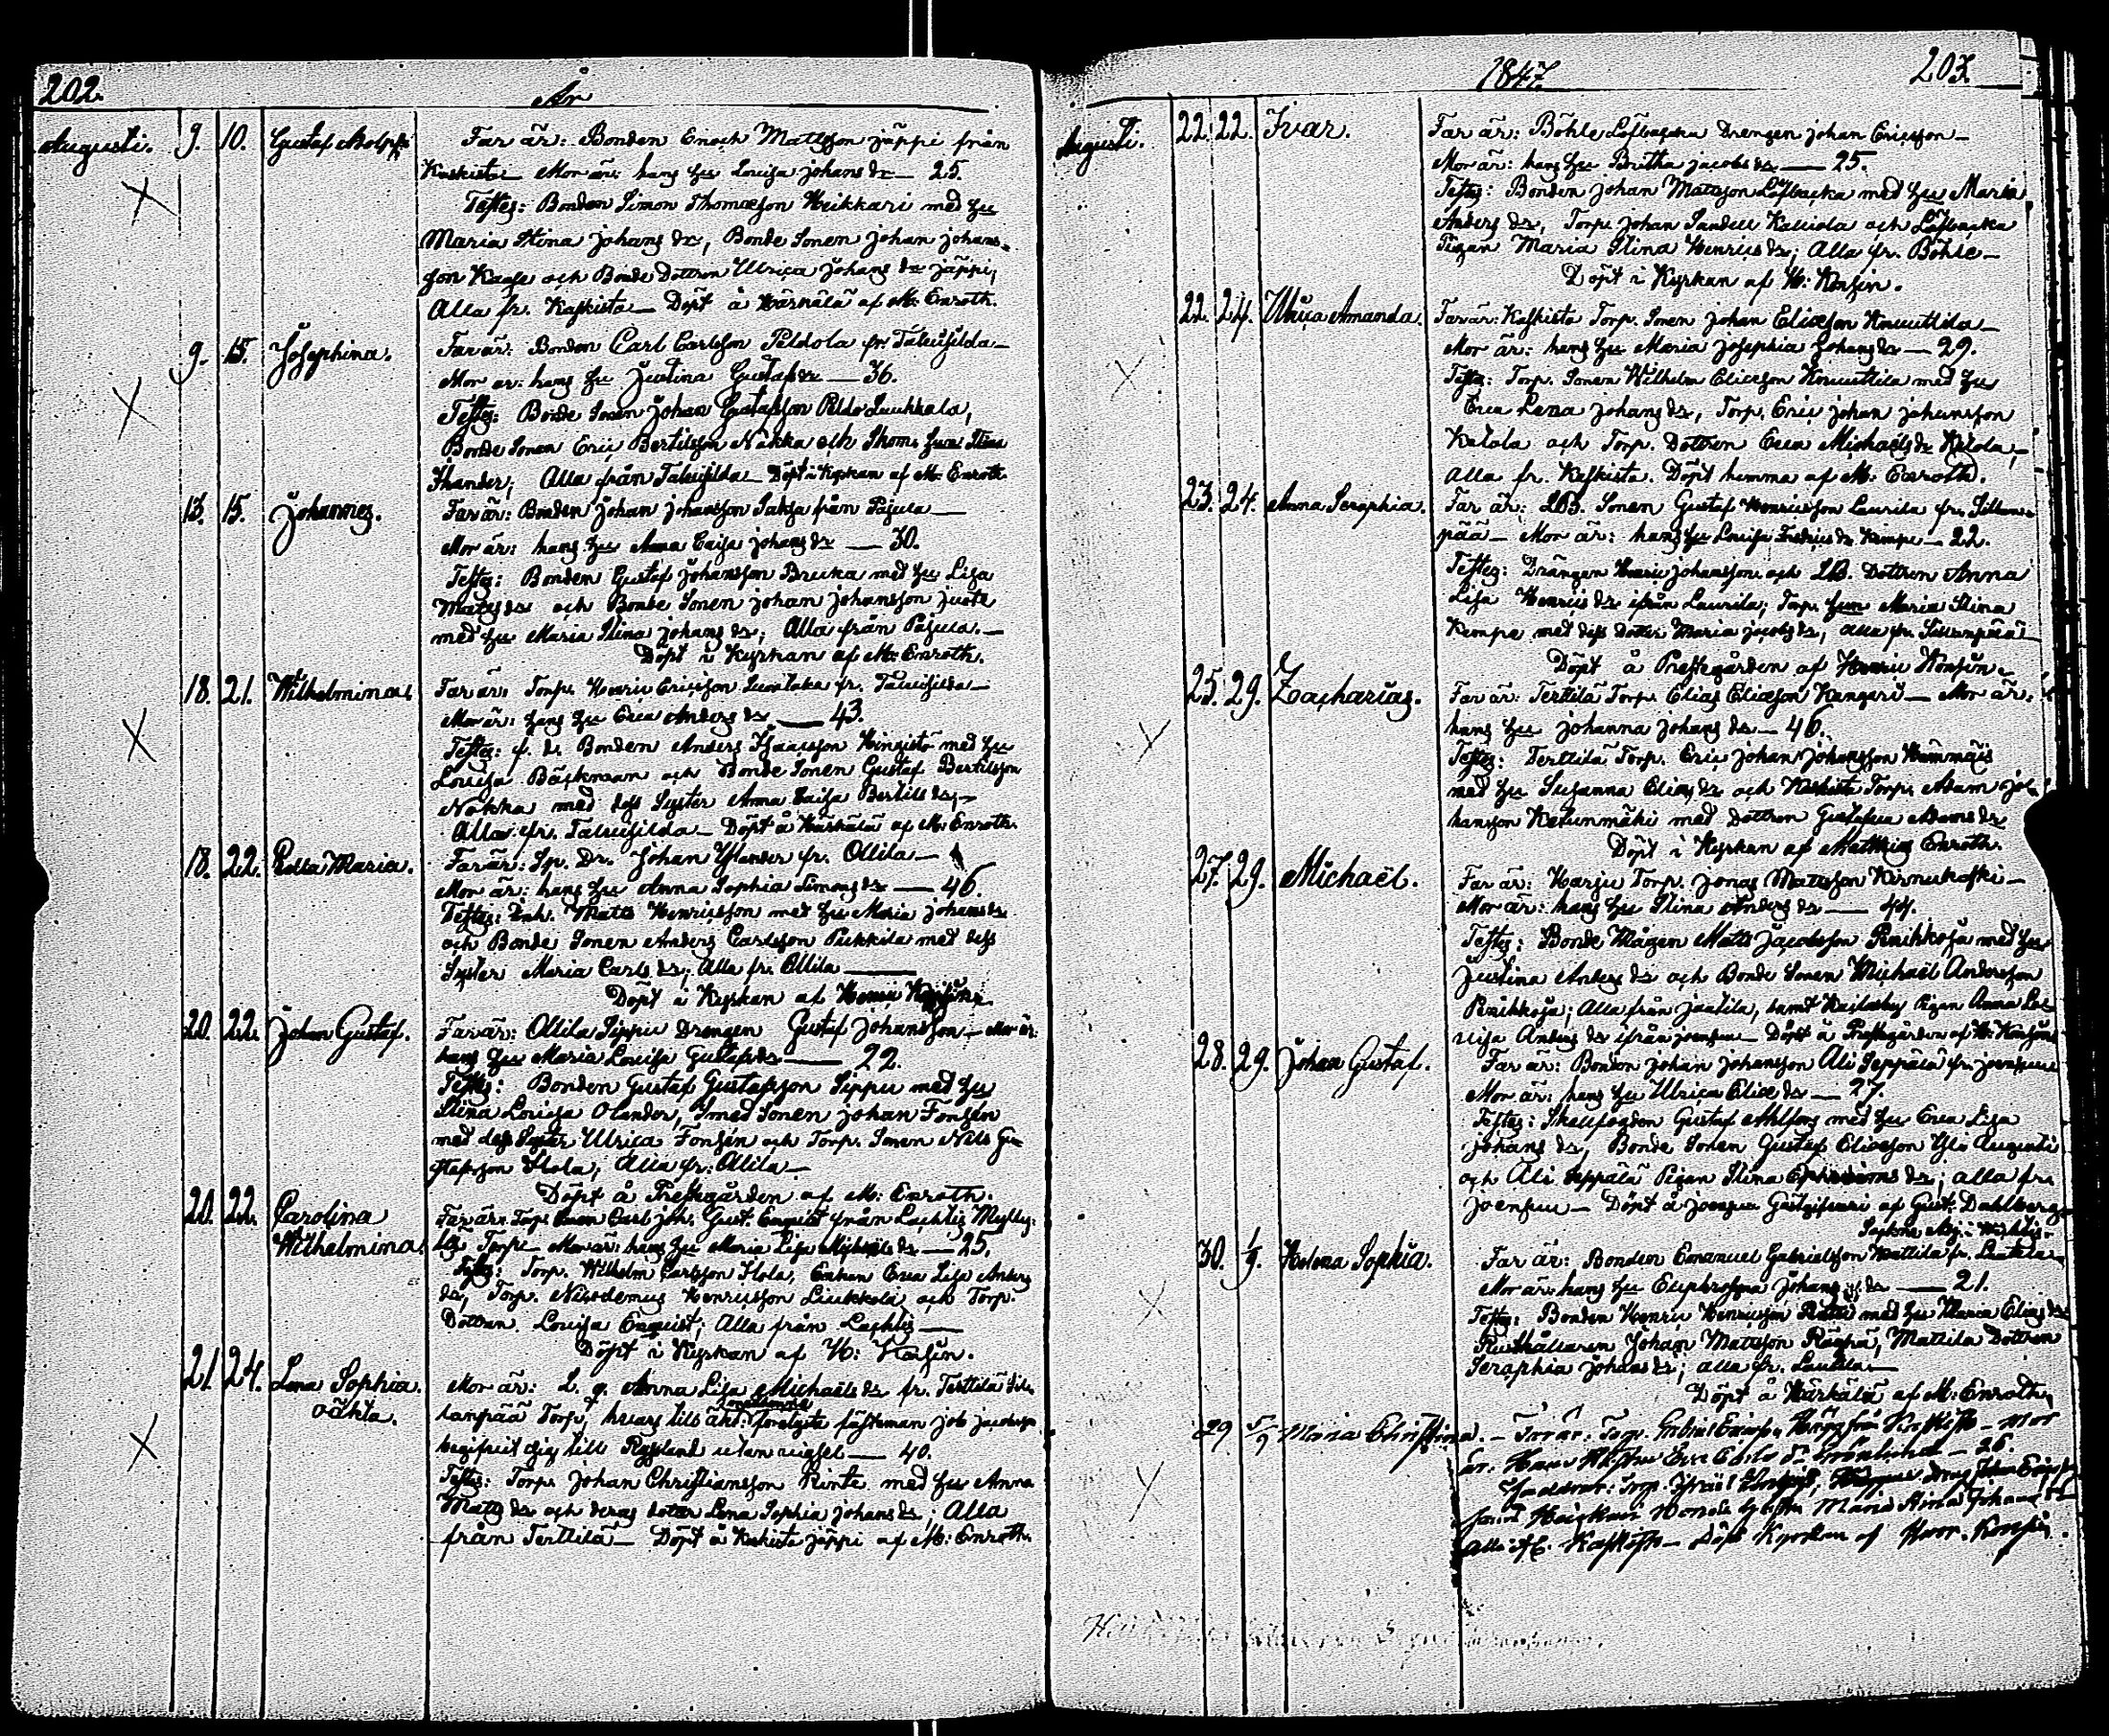 202.
År
Augusti. 9. 10. Gustaf Adolph
Far är: Bonden Enoch Mattsson Jäppi från
Kaskista — Mor är: hans hu Lovisa Johans dr — 25.
Testes: Bonden Simon Thomasson Heikkari med hu
Maria Stina Johans dr, Bonde Sonen Johan Johans-
son Kaase och Bonde Dottren Ulrica Johans dr Jäppi,
Alla fr. Kaskista — Döpt å Härkälä af M: Enroth.
9. 15. Josephina.
Far är: Bonden Carl Carlsson Peldola fr. Talusilda —
Mor är: hans hu Justina Gustafs dr — 36.
Testes: Bonde Sonen Johan Gustafsson
Bonde Sonen Eric Bertilsson Näkka och hustru Stina
Alla från Talusilda — Döpt i Kyrkan af M: Enroth
13. 15. Johannes.
Far är: Bonden Johan Johansson Saksa från Pajula —
Mor är: hans hu Anna Caisa Johans dr — 30.
Testes: Bonden Gustaf Johansson Bruka med hu Lisa
Mats dr och Bonde Sonen Johan Johansson
med hu Maria Stina Johans dr; Alla från Pajula. —
Döpt i Kyrkan af M: Enroth.
18. 21. Wilhelmina.
Far är: Torp. Henric Ericsson fr. Talusilda —
Mor är: hans hu Erica Anders dr — 43.
Testes: f. d. Bonden Anders Isaacsson Hingistö med hu
Lovisa Bäckman och Bonde Sonen Gustaf Bertilsson
Näkka med dess Syster Anna Caisa Bertils dr, —
Alla fr. Talusilda — Döpt å Härkälä af M: Enroth.
18. 22. Edla Maria.
Far är: Sp. Dr. Johan Ylander fr. Ollila —
Mor är: hans hu Anna Sophia Simons dr — 46.
Testes: Inh. Matts Henricsson med hu Maria Johans dr
och Bonde Sonen Anders Carlsson Pukkila med dess
Syster Maria Carls dr; Alla fr. Ollila —
Döpt i Kyrkan af Henric Konsin.
20. 22. Johan Gustaf.
Far är: Ollila Sippu Drengen Gustaf Johansson — Mor är:
hans hu Maria Lovisa Gustafs dr — 22.
Testes: Bonden Gustaf Gustafsson Sippu med hu
Stina Lovisa Olander, Smed Sonen Johan Fonsén
med dess Syster Ulrica Fonsén och Torp. Sonen Nils Gu-
stafsson Ilola; Alla fr: Ollila —
Döpt å Prestegården af M: Enroth.
20. 22. Carolina
Wilhelmina.
Far är: Torp. Sonen Carl Joh. Gust. Enqvist från Lachtis
Torp — Mor är: hans hu Maria Lisa Michels dr — 25.
Testes: Torp. Wilhelm Carlsson Ilola, Enkan Erica Lisa Anders
dr, Torp. Nicodemus Henricsson Liukkola och Torp.
Dottren Lovisa Enqvist; Alla från Lachtis —
Döpt i Kyrkan af H: Konsin.
21. 24. Lena Sophia.
oäkta.
Mor är: L. q. Anna Lisa Michaels dr fr. Terttilä
Torp, hvars till äkt: förelyste fästeman Job Jacobsson
begifvit sig till Ryssland utan — 40.
Testes: Torp. Johan Christiansson Rinte med hu Anna
Mats dr och deras dotter Lena Sophia Johans dr; Alla
från Terttilä — Döpt å Kaskista Jäppi af M: Enroth.
1847.
203.
Augusti. 22. 22. Ivar.
Far är: Böhle Löfbacka Drengen Johan Ericsson —
Mor är: hans hu Britha Jacobs dr — 25.
Testes: Bonden Johan Mattsson Löfbacka med hu Maria
Anders dr, Torp. Johan Sandell Kalliola och Löfbacka
Pigan Maria Stina Henrics dr; Alla fr. Böhle —
Döpt i Kyrkan af H: Konsin.
22. 24. Ulrica Amanda.
Far är: Kaskista Torp. Sonen Johan Eliasson Knuuttila —
Mor är: hans hu Maria Josephia Johans dr — 29.
Testes: Torp. Sonen Wilhelm Eliasson Knuuttila med hu
Erica Lena Johans dr, Torp. Eric Johan Johansson
Katola och Torp. Dottren Erica Michaels dr Katola, —
Alla fr. Kaskista. Döpt hemma af M: Enroth.
23. 24. Anna Seraphia.
Far är: LB. Sonen Gustaf Henricsson Laurila fr. Sillan-
pää — Mor är: hans hu Lovisa Fredrics dr Kempe — 22.
Testes: Drängen Henric Johansson och LB. Dottren Anna
Lisa Henrics dr ifrån Laurila; Torp. hun Maria Stina
Kempe med dess dotter Maria Jacobs dr, alla fr. Sillanpää —
Döpt å Prestegården af Henric Konsin —
25. 29. Zacharias.
Far är: Terttilä Torp. Elias Eliasson Kangari — Mor är:
hans hu Johanna Johans dr — 46.
Testes: Terttilä Torp. Eric Johan Johansson Hammais
med hu Susanna Elias dr och Kaskista Torp. Adam Jo-
hansson Ketunmäki med Dottren Gustafva Adams dr
Döpt i Kyrkan af Matthias Enroth.
27. 29. Michaël.
Far är: Harju Torp. Jonas Mattsson Kirnukoski —
Mor är: hans hu Stina Anders dr — 44.
Testes: Bonde Mågen Matts Jacobsson Penikkoja med hu
Justina Anders dr och Bonde Sonen Michaël Andersson
Penikkoja; Alla från Jaatila, samt Pigan Anna Lo-
visa Anders dr ifrån Joensuu — Döpt å Prestegården af H: Konsin
28. 29. Johan Gustaf.
Far är: Bonden Johan Johansson Ali Seppälä fr. Joensuu
Mor är: hans hu Ulrica Elias dr — 27.
Testes: Skallfogden Gustaf Ahlfors med hu Erica Lisa
Johans dr, Bonde Sonen Gustaf Eliasson Yli Augusti
och Ali Seppälä Pigan Stina Ephraims dr; alla fr.
Joensuu — Döpt å Joensuu Gästgifveri af Gust. Dahlberg,
30. 1/9. Helena Sophia.
Far är: Bonden Emanuel Gabrielsson Mattila fr. Lautela —
Mor är: hans hu Euphrosyna Johans dr — 21.
Testes: Bonden Henric Henricsson med hu Maria Elias dr
Rusthållaren Johan Mattsson Mattila Dottren
Seraphia Johans dr; alla fr. Lautela —
Döpt å Härkälä af M: Enroth,
29 5/9 Maria Christina. — Far är: Torp. Kaskisto — Mor
är: Hans Hustru — 26.
Faddrar: Torp.
Maria Stina Johans dr
Alla fr. Kaskisto — Döpt Kyrckan af Henr. Konsin.